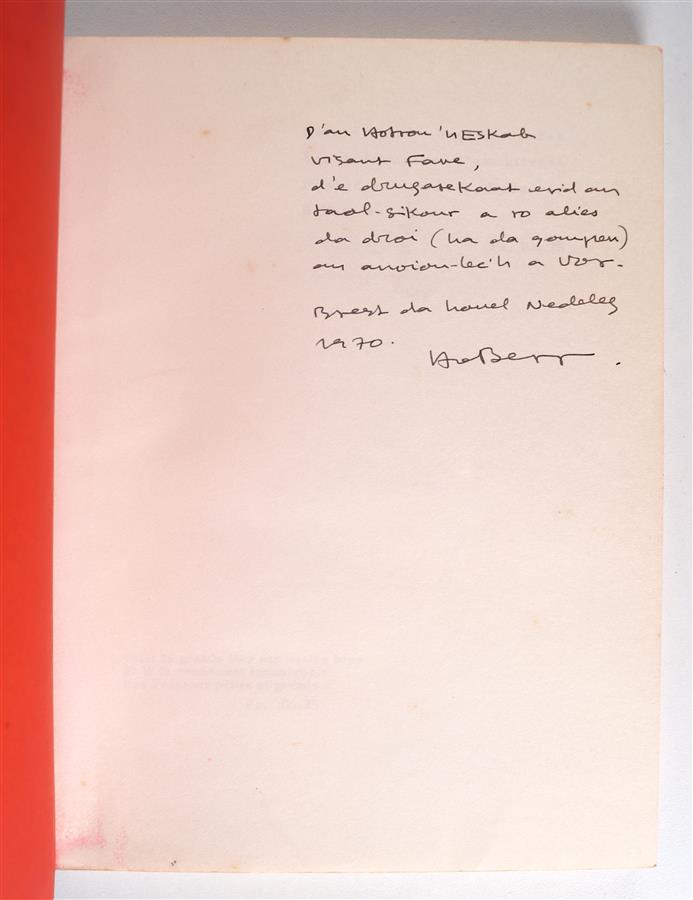 D'an Aotrou 'n Eskob
Visant Fave,
d'e drugarekaat evid an
taol-sikour a ro alies
da droi (ha da gompren)
an anoiou-lec'h a Vor.
Brest da houel Nedeleg
1970.